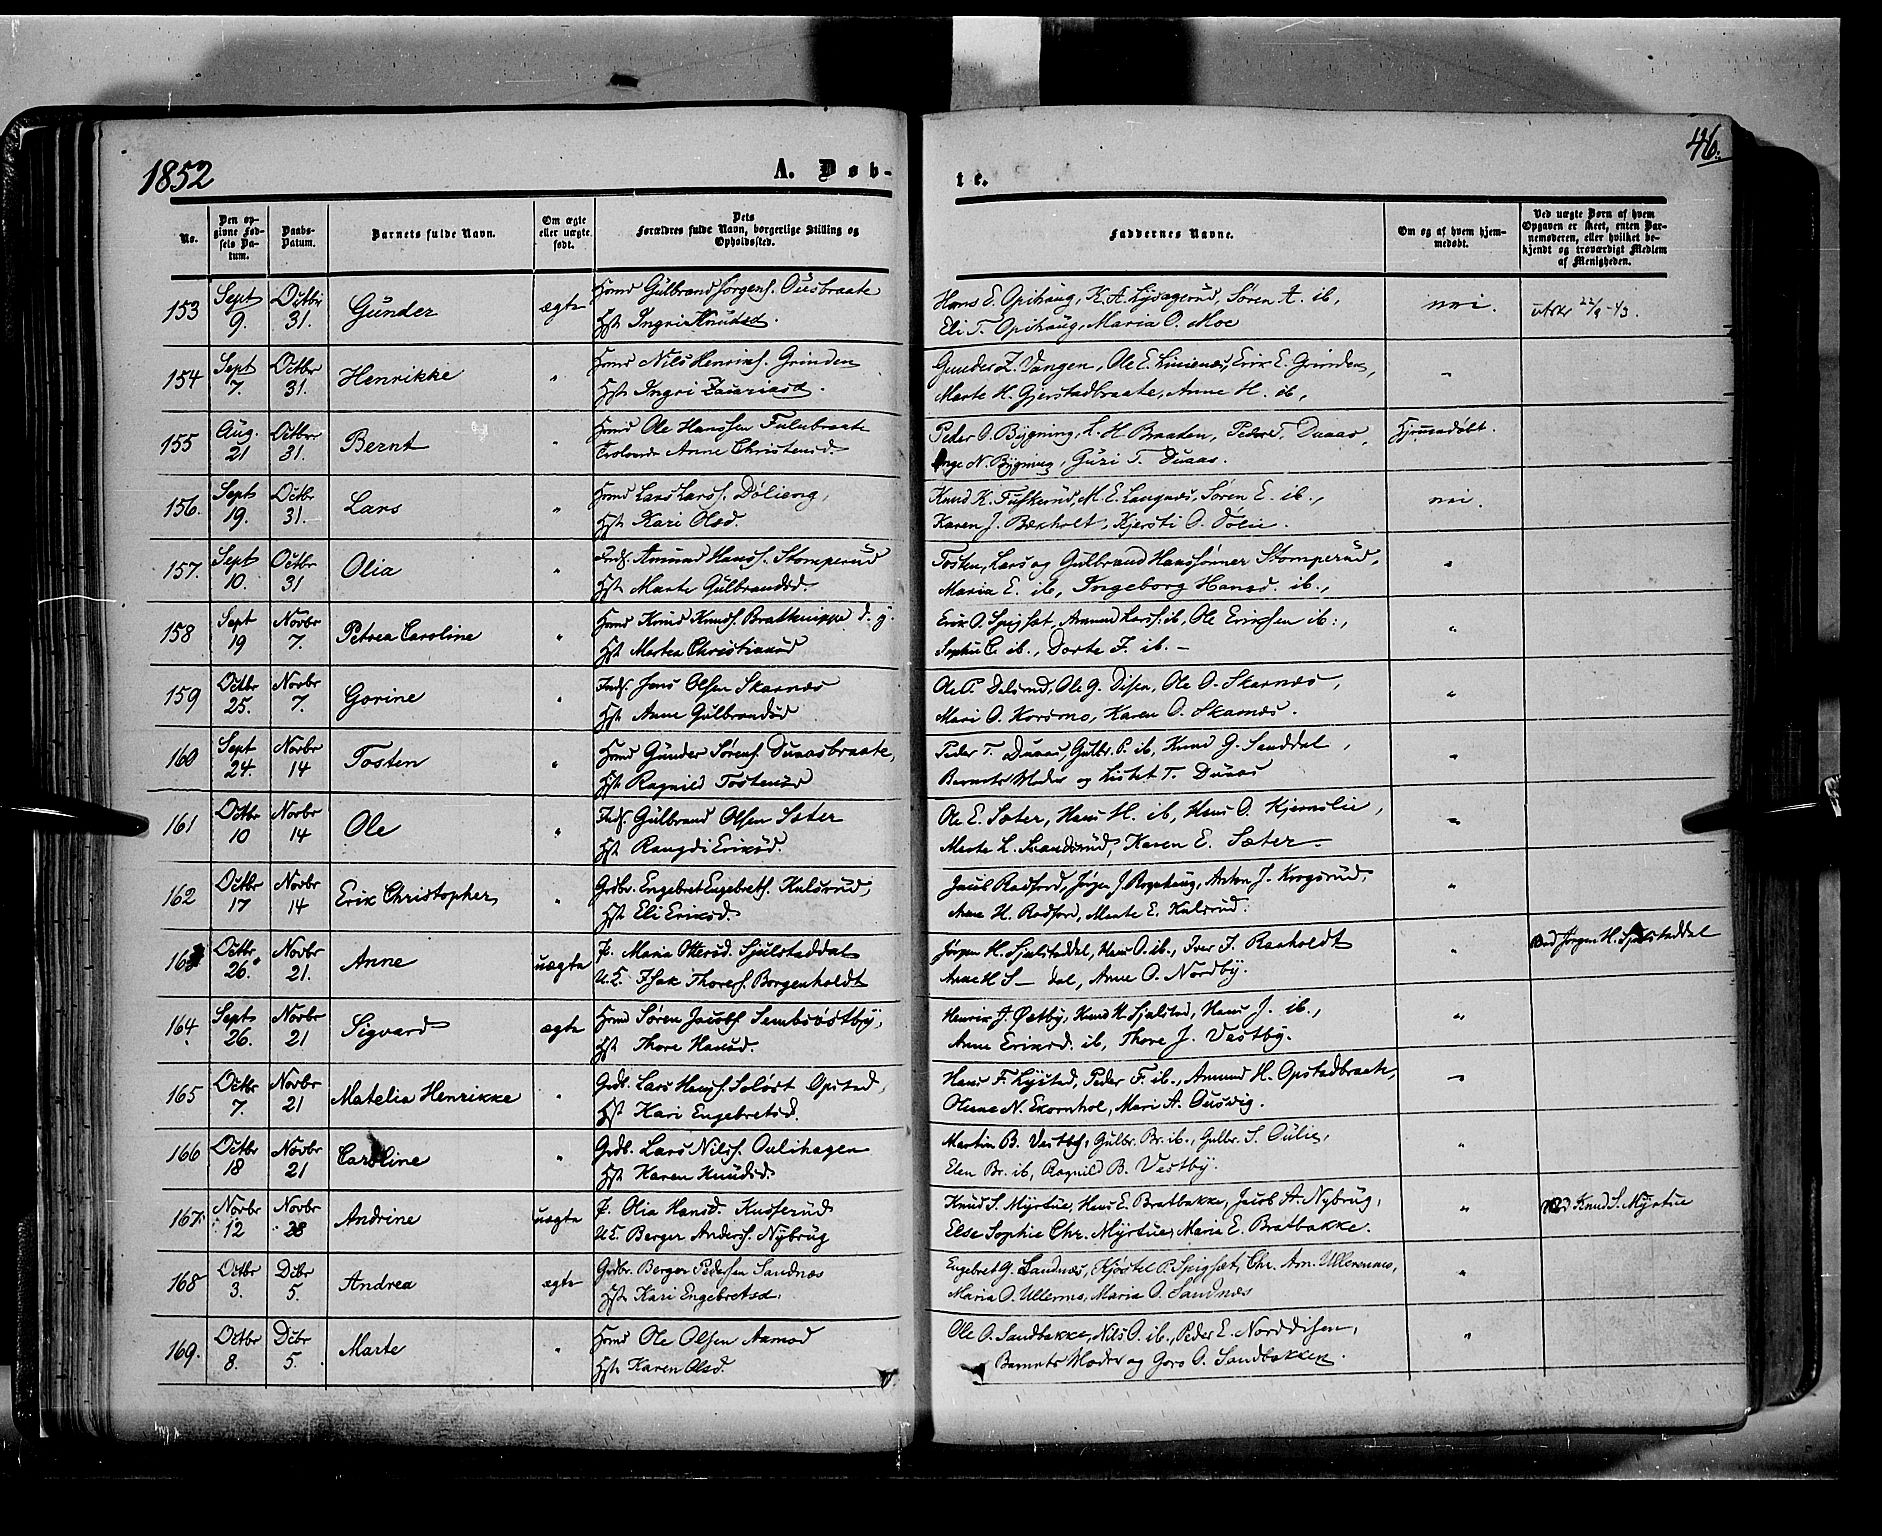 1852
A. Døb-
te.
46.
No.
Den op-
givne Fød-
sels Da-
tum.
Daabs-
Datum.
Barnets fulde Navn.
Om ægte
eller uægte
født.
Dets
Forældres fulde Navn, borgerlige Stilling og
Opholdssted.
Faddernes Navne.
Om og af hvem hjem-
medøbt.
Ved uægte Børn af hvem
Opgaven er skeet, enten Bar-
nemoderen, eller hvilket be-
kjendt og troværdigt Medlem
af Menigheden.
153 Sept 9. Octbr 31. Gunder ægte Gulbrand Jorgens. Ousbraate
Ingri Knudsd.
Hans E. Opihaug, K. A. Lysagerud, Søren A. ib,
Eli T. Opihaug, Maria O. Moe
nei. 22/9-43.
154 Sept 7. Octbr 31. Henrikke " Nils Henriks. Grinden
Ingri Zacariasd.
Gunder Z. Vangen, Ole E. Linenes, Erik E. Grinden,
Marte H. Gjerstadbraate, Anne H. ib,
"
155 Aug. 21 Octbr 31. Bernt Ole Hanssen Fulubraate
Anne Christensd.
Peder O. Bygning, L. H. Braaten, Peder T. Duaas,
Inge N. Bygning, Guri T. Duaas.
Hjemmedøbt.
156. Sept 19. Octbr 31. Lars " Lars Lars. Dølieng,
Kari Olsd.
Knud K. Fuskerud, M. E. Langnes, Søren E. ib.,
Karen J. Bekholt, Kjersti O. Dølie.
nei.
157. Sept 10. Octbr 31 Olia " Amund Hans. Stomperud
Marte Gulbrandsd.
Tosten, Lars og Gulbrand Hanssønner Stomperud,
Maria E. ib, Ingeborg Hansd. ib.,
"
158 Sept 19 Novbr 7. Petrea Caroline " Knud Knuds. Bratknippe d. y.
Martea Christiansd
Erik O. Spigset, Amund Lars. ib, Ole Eriksen ib.,
Sophie C. ib., Dorte F. ib. -
"
159 Octbr 25. Novbr 7. Gorine " Jens Olsen Skarnæs
Anne Gulbrandsd
Ole P. Dalsrud, Ole G. Disen, Ole O. Skarnæs,
Mari O. Korsmo, Karen O. Skarnæs.
"
160 Sept 24. Novbr 14 Tosten " Gunder Sørens. Duaasbraate,
Ragnild Tostensd
Peder T. Duaas, Gulbr. P. ib, Knud G. Sanddal,
Barnets Moder og Lisbet T. Duaas
"
161 Octbr 10 Novbr 14 Ole " Gulbrand Olsen Sæter
Rangdi Eriksd.
Ole E. Sæter, Hans H. ib, Hans O. Kjernslie,
Marte L. Svandsrud, Karen E. Sæter.
"
162 Octbr 17 Novbr 14 Erik Christopher " Grdbr. Engebret Engebrets. Kulsrud,
Eli Eriksd.
Jacob Radford, Jørgen J. Rogshaug, Anton J. Krogsrud,
Anne H. Radford, Marte E. Kulsrud.
"
163 Octbr 26. Novbr 21. Anne uægte P. Maria Ottersd. Sjulstaddal
U. C. Isak Thores. Borgenholdt
Jørgen H. Sjulstaddal, Hans O. ib., Iver I. Raaholdt
Anne H. S - dal, Anne O. Nordby.
" Ved Jørgen H. Sjulstaddal
164. Sept 26. Novbr 21 Sigvard ægte Søren Jacobs. Sembsvestby,
Thore Hansd.
Henrik J. Østby, Knud H. Sjulstad, Hans J. ib.,
Anne Eriksd. ib, Thore J. Vestby.
"
165 Octbr 7. Novbr 21 Matelia Henrikke " Grdb. Lars Hans. Soløst Opstad,
Kari Engebretsd.
Hans F. Lystad, Peder F. ib., Amund H. Opstadbraate,
Oleane N. Ekornhol, Mari A. Ousvig.
"
166 Octbr 18 Novbr 21 Caroline " Grdb. Lars Nils. Oulihagen
Karen Knudsd.
Martin B. Vestby, Gulbr. Br. ib., Gulbr. S. Oulie,
Elen Br. ib, Ragnild B. Vestby.
"
167. Novbr 12 Novbr 28 Andrine uægte P. Olia Hansd. Kusserud
U. C. Berger Anders. Nybrug
Knud S. Myrtue, Hans E. Bratbakke, Jacob A. Nybrug,
Else Sophie Chr. Myrtue, Marie E. Bratbakke.
" Ved Knud S. Myrtue
168 Octbr 3. Dcbr 5. Andrea ægte Grdbr. Berger Pedersen Sandnæs
Kari Engebretsd.
Engebret G. Sandnæs, Kjøstel P. Spigsæt, Chr. Am. Ullerennes,
Maria O. Ullernes, Maria O. Sandnæs
"
169. Octbr 8. Dcbr 5. Marte " Ole Olsen Aamod
Karen Olsd.
Ole O. Sandbakke, Nils O. ib., Peder E. Norddisen,
Barnets Moder og Goro O. Sandbakken.
"